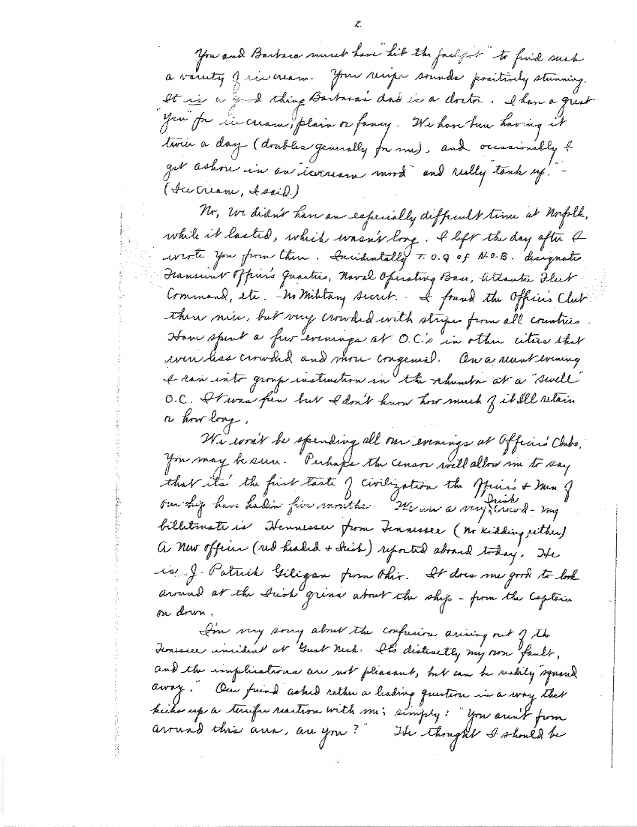 2.
You and Barbara must have "hit the jackpot" to find such
a variety of ice cream. Your recipe sounds positively stunning.
It is a good thing Barbara's dad is a doctor. I have a great
"yen" for ice cream, plain or fancy. We have been having it
twice a day (doubles generally for me), and occasionally I
get ashore in an "icecream mood" and really "tank up." -
(Ice Cream, I said.)
No, we didn't have an especially difficult time at Norfolk,
while it lasted, which wasn't long. I left the day after I
wrote you from there. Incidentally T.O.Q of N.O.B. designates
Transient Officers Quarters, Naval Operating Base, Atlantic Fleet
Command, etc. No Military secret. I found the Officers Club
there nice, but very crowded with stripes from all countries.
Have spent a few evenings at O.C.'s in other cities that
were less crowded and more congenial. On a recent evening
I ran into group instruction in the rhumba at a "swell"
O.C. It was fun but I don't know how much of it I'll retain
or how long.
We won't be spending all our evenings at Officers Clubs,
you may be sure. Perhaps the censor will allow me to say
that it's the first taste of civilization the Officers & Men of
our ship have had in five months. We are a very Irish crowd - my
billetmate is Hennessee from Tennessee (no kidding, either)
A new officer (red headed & Irish) reported aboard today. He
is J. Patrick Giligan from Ohio. It does me good to look
around at the Irish grins about the ship - from the Captain
on down.
I'm very sorry about the confusion arising out of the
Tennessee incident at Great Neck. It's distinctly my own fault,
and the implications are not pleasant, but can be easily "squared
away." Our friend asked rather a leading question in a way that
kicks up a terrific reaction with me; simply: "You aren't from
around this area, are you?" He thought I should be